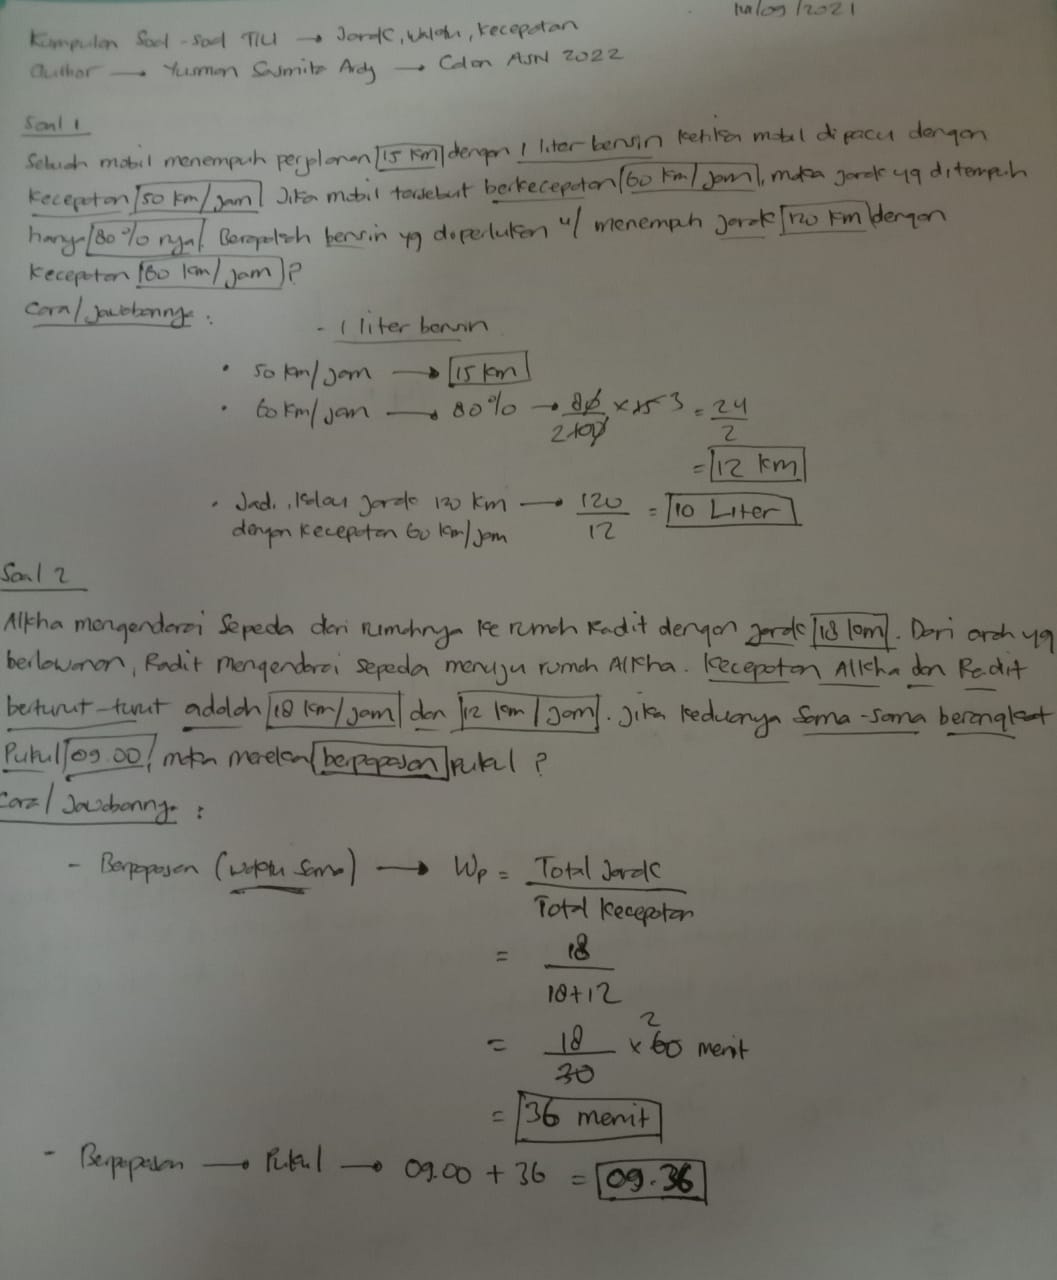 14/09/2021
Kumpulan Soal-soal TIU → Jarak, Waktu, Kecepatan
Author → Yusman Sasmita Ardy → Calon ASN 2022
Soal 1
Sebuah mobil menempuh perjalanan 15 km dengan 1 liter bensin ketika mobil dipacu dengan
kecepatan 50 km/jam. Jika mobil tersebut berkecepatan 60 km/jam, maka jarak yg ditempuh
hanya 80% nya. Berapakah bensin yg diperlukan u/ menempuh jarak 120 km dengan
kecepatan 60 km/jam?
Cara/Jawabannya :
- 1 liter bensin
• 50 km/jam → 15 km
• 60 km/jam → 80% → 80/100 2 × 15 3 = 24/2
= 12 km
• Jadi, kalau jarak 120 km → 120/12 = 10 Liter
dengan kecepatan 60 km/jam
Soal 2
Alkha mengendarai sepeda dari rumahnya ke rumah Radit dengan jarak 18 km. Dari arah yg
berlawanan, Radit mengendarai sepeda menuju rumah Alkha. Kecepatan Alkha dan Radit
berturut-turut adalah 18 km/jam dan 12 km/jam. Jika keduanya sama-sama berangkat
Pukul 09.00, maka mereka berpapasan pukul ?
Cara/Jawabannya :
- Berpapasan (waktu sama) → Wp = Total Jarak/Total Kecepatan
= 18/18+12
= 18/30 × 60 2 menit
= 36 menit
- Berpapasan → Pukul → 09.00 + 36 = 09.36